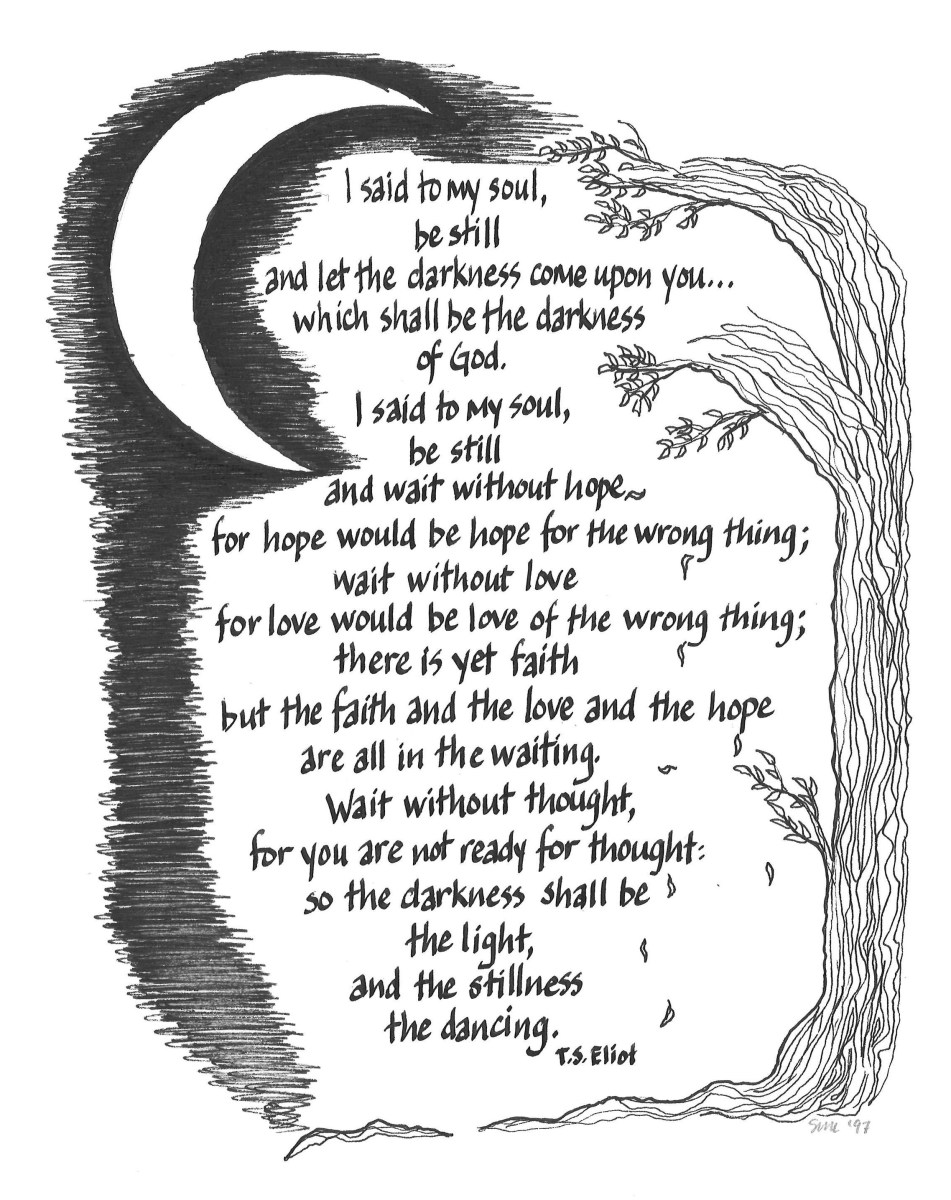 I said to my soul,
be still
and let the darkness come upon you...
which shall be the darkness
of God.
I said to my soul,
be still
and wait without hope~
for hope would be hope for the wrong thing;
wait without love
for love would be love of the wrong thing;
there is yet faith
but the faith and the love and the hope
are all in the waiting.
Wait without thought,
for you are not ready for thought:
so the darkness shall be
the light,
and the stillness
the dancing.
T.S. Eliot
'97